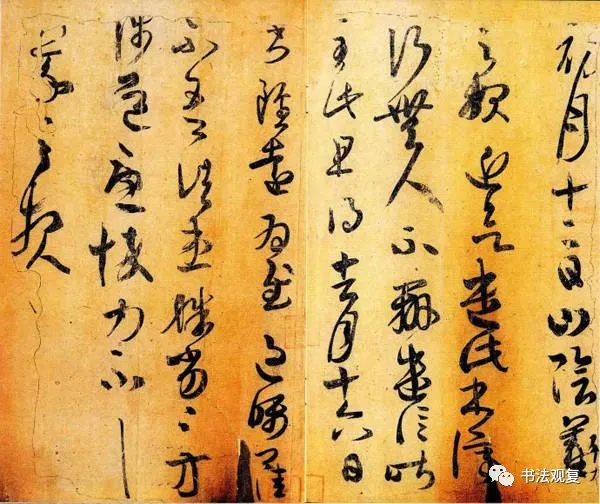 初月十二日山陰羲
之報近欲遣此書停
行無人不辦遣信昨
至此且得去月十六日
書雖遠為慰過囑
不吾諸患殆劣劣方
涉道憂悴力不一一
羲之報
书法观复